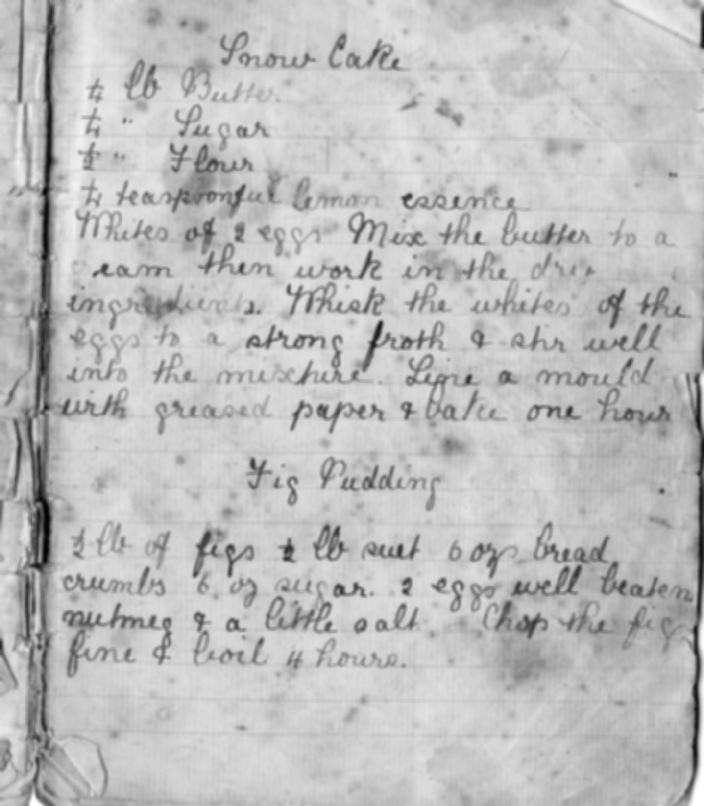 Snow Cake
¼ lb Butter
¼ " Sugar
½ " Flour
¼ teaspoonful lemon essence
Whites of 2 eggs Mix the butter to a
eam then work in the
ingredients. Whisk the whites of the
eggs to a strong froth & stir well
into the mixture. Line a mould
with greased paper & bake one hour
Fig Pudding
½ lb of figs ½ lb suet 6 ozs bread
crumbs 6 oz sugar. 2 eggs well beaten
nutmeg & a little salt Chop the figs
fine & boil 4 hours.